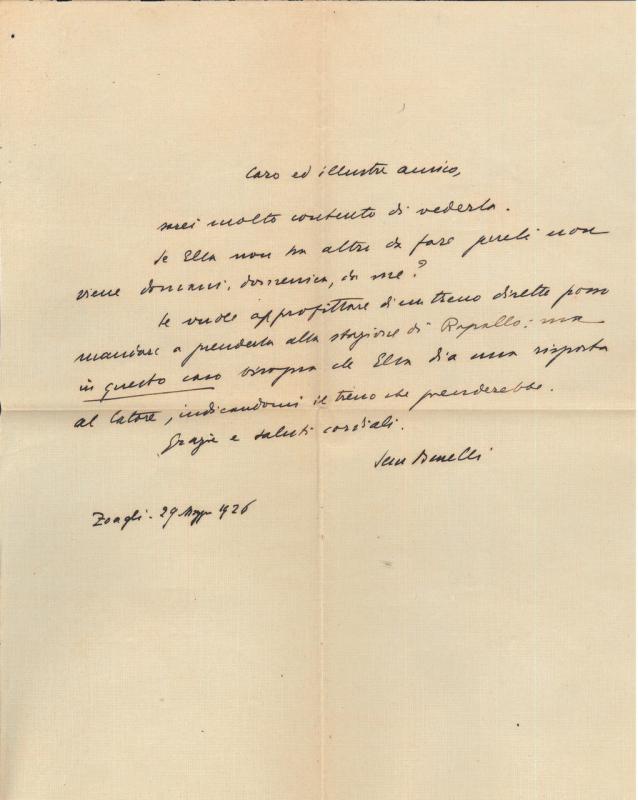 Caro ed illustre amico,
sarei molto contento di vederla.
Se Ella non ha altro da fare perché non
viene domani, domenica, da me?
Se vuole approfittare di un treno diretto posso
mandare a prenderla alla stazione di Rapallo: ma
in questo caso bisogna che Ella dia una risposta
al latore, indicandomi il treno che prenderebbe.
Grazie e saluti cordiali.
Sem Benelli
Zoagli - 29 Maggio 1926